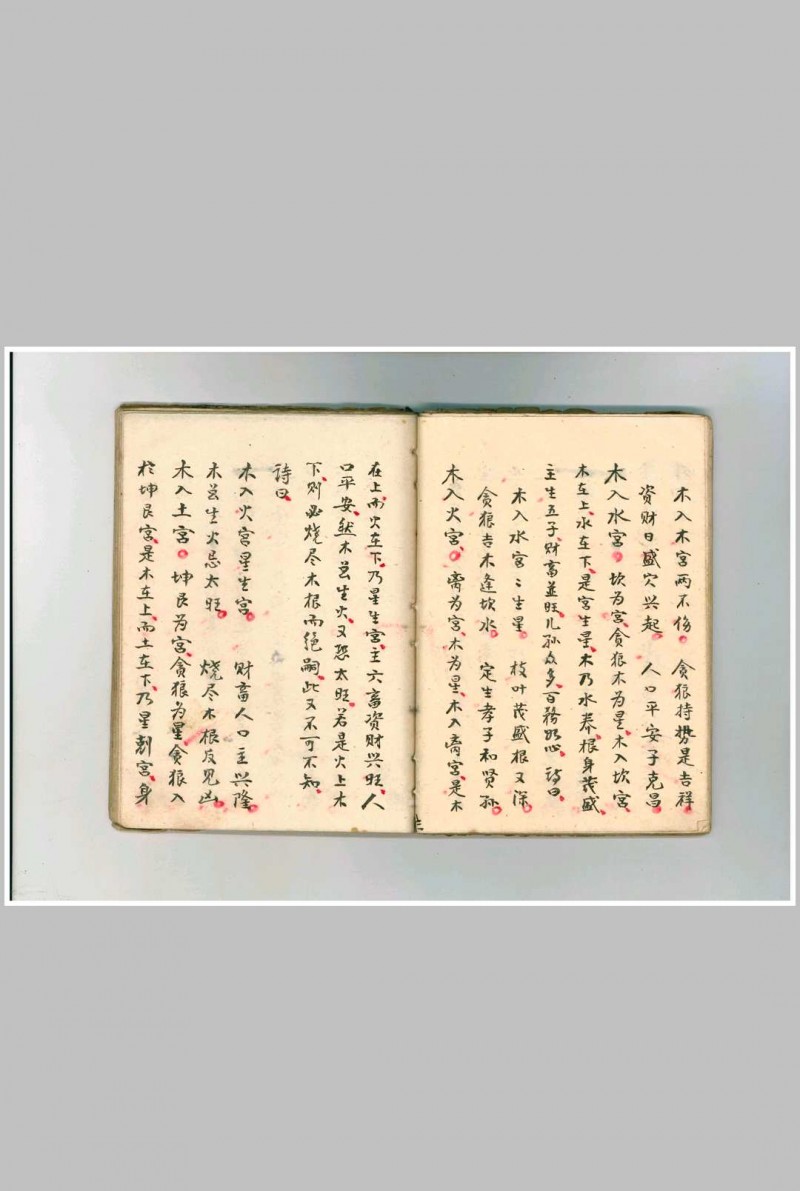 木入木宫两不伤。 贪狼持势是吉祥。
资财日盛穴兴起。 人口平安子克昌。
木入水宫。坎为宫、贪狼木为星、木入坎宫、
木在上、水在下、是宫生星、木乃水养、根身茂盛、
主生五子、财畜並旺、儿孙众多、百務如心、诗曰、
木入水宫〻生星。 枝叶茂盛根又深。
贪狼吉木逢坎水。 定生孝子和贤孙。
木入火宫。离为宫、木为星、木入离宫、是木
在上、而火在下、乃星生宫、主六畜资财兴旺、人
口平安、然木虽生火、又恐太旺、若是火上木
下、则必烧尽木根而绝嗣、此又不可不知、
诗曰、
木入火宫星生宫。 财畜人口主兴隆。
木虽生火忌太旺。 烧尽木根反見凶。
木入土宫。坤艮为宫、贪狼为星、贪狼入
於坤艮宫、是木在上、而土在下、乃星剋宫、身